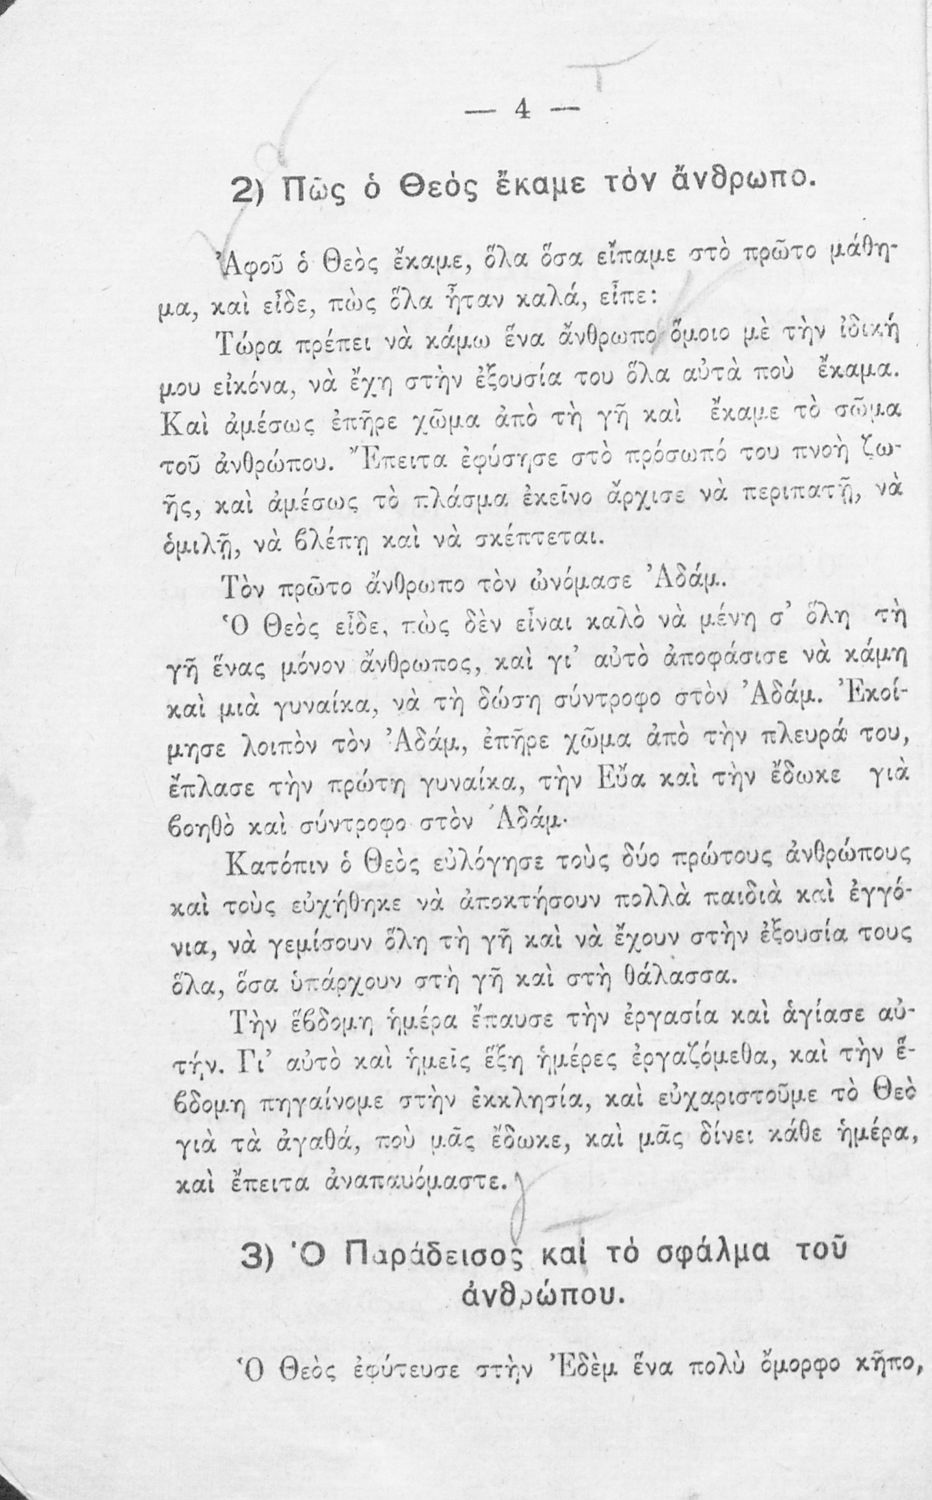 — 4 —
2) Πῶς ὁ Θεός ἔκαμε τόν ἄνθρωπο.
Ἀφοῦ ὁ Θεὸς ἔκαμε, ὅλα ὅσα εἴπαμε στὸ πρῶτο μάθη-
μα, καὶ εἶδε, πὼς ὅλα ἦταν καλά, εἶπε:
Τώρα πρέπει νὰ κάμω ἕνα ἄνθρωπο ὅμοιο μὲ τὴν ἰδική
μου εἰκόνα, νὰ ἔχη στὴν ἐξουσία του ὅλα αὐτὰ ποὺ ἔκαμα.
Καὶ ἀμέσως ἐπῆρε χῶμα ἀπὸ τὴ γῆ καὶ ἔκαμε τὸ σῶμα
τοῦ ἀνθρώπου. Ἔπειτα ἐφύσησε στὸ πρόσωπό του πνοὴ ζω-
ῆς, καὶ ἀμέσως τὸ πλάσμα ἐκεῖνο ἄρχισε νὰ περιπατῇ, νὰ
ὁμιλῇ, νὰ βλέπῃ καὶ νὰ σκέπτεται.
Τὸν πρῶτο ἄνθρωπο τὸν ὠνόμασε Ἀδάμ.
Ὁ Θεὸς εἶδε, πὼς δὲν εἶναι καλὸ νὰ μένη σ' ὅλη τὴ
γῆ ἕνας μόνον ἄνθρωπος, καὶ γι' αὐτὸ ἀποφάσισε νὰ κάμη
καὶ μιὰ γυναίκα, νὰ τὴ δώση σύντροφο στὸν Ἀδάμ. Ἐκοί-
μησε λοιπὸν τὸν Ἀδάμ, ἐπῆρε χῶμα ἀπὸ τὴν πλευρά του,
ἔπλασε τὴν πρώτη γυναίκα, τὴν Εὔα καὶ τὴν ἔδωκε γιὰ
βοηθὸ καὶ σύντροφο στὸν Ἀδάμ.
Κατόπιν ὁ Θεὸς εὐλόγησε τοὺς δύο πρώτους ἀνθρώπους
καὶ τοὺς εὐχήθηκε νὰ ἀποκτήσουν πολλὰ παιδιὰ καὶ ἐγγό-
νια, νὰ γεμίσουν ὅλη τὴ γῆ καὶ νὰ ἔχουν στὴν ἐξουσία τους
ὅλα, ὅσα ὑπάρχουν στὴ γῆ καὶ στὴ θάλασσα.
Τὴν ἕβδομη ἡμέρα ἔπαυσε τὴν ἐργασία καὶ ἁγίασε αὐ-
τήν. Γι' αὐτὸ καὶ ἡμεῖς ἕξη ἡμέρες ἐργαζόμεθα, καὶ τὴν ἕ-
βδομη πηγαίνομε στὴν ἐκκλησία, καὶ εὐχαριστοῦμε τὸ Θεὸ
γιὰ τὰ ἀγαθά, ποὺ μᾶς ἔδωκε, καὶ μᾶς δίνει κάθε ἡμέρα,
καὶ ἔπειτα ἀναπαυόμαστε.
3) Ὁ Παράδεισος καί τό σφάλμα τοῦ
ἀνθρώπου.
Ὁ Θεὸς ἐφύτευσε στὴν Ἐδὲμ ἕνα πολὺ ὄμορφο κῆπο,